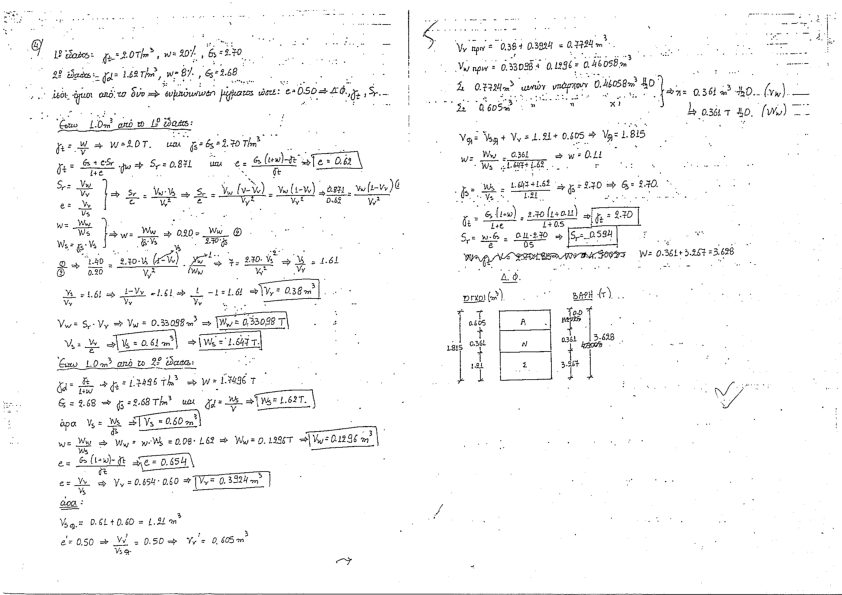 ④ 1º έδαφος: γt = 2.0 T/m³, w = 20%, Gs = 2.70
2º έδαφος: γd = 1.62 T/m³, w = 8%, Gs = 2.68
ίσοι όγκοι από τα δύο ⇒ συμπύκνωση μίγματος ώστε: e = 0.50 ⇒ Δ.Φ., γt, Sr...
Έστω 1.0 m³ από το 1º έδαφος:
γt = W/V ⇒ W = 2.0 T. και γs = Gs = 2.70 T/m³
γt = (Gs + e·Sr)/(1+e) · γw ⇒ Sr = 0.871 και e = (Gs(1+w) - γt)/γt ⇒ e = 0.62
Sr = Vw/Vv
e = Vv/Vs } ⇒ Sr/e = Vw·Vs/Vv² ⇒ Sr/e = Vw(V-Vv)/Vv² = Vw(1-Vv)/Vv² ⇒ 0.871/0.62 = Vw(1-Vv)/Vv² ①
w = Ww/Ws
Ws = γs·Vs } ⇒ w = Ww/(γs·Vs) ⇒ 0.20 = Ww/(2.70·Vs) ②
①/② ⇒ 1.40/0.20 = 2.70·Vs(1-Vv)/Vv² · Vw/Ww ⇒ 7 = 2.70·Vs²/Vv² ⇒ Vs/Vv = 1.61
Vs/Vv = 1.61 ⇒ (1-Vv)/Vv = 1.61 ⇒ 1/Vv - 1 = 1.61 ⇒ Vv = 0.38 m³
Vw = Sr·Vv ⇒ Vw = 0.33098 m³ ⇒ Ww = 0.33098 T
Vs = Vv/e ⇒ Vs = 0.61 m³ ⇒ Ws = 1.647 T.
Έστω 1.0 m³ από το 2º έδαφος:
γd = γt/(1+w) ⇒ γt = 1.7496 T/m³ ⇒ W = 1.7496 T
Gs = 2.68 ⇒ γs = 2.68 T/m³ και γd = Ws/V ⇒ Ws = 1.62 T.
άρα Vs = Ws/γs ⇒ Vs = 0.60 m³
w = Ww/Ws ⇒ Ww = w·Ws = 0.08·1.62 ⇒ Ww = 0.1296 T ⇒ Vw = 0.1296 m³
e = (Gs(1+w) - γt)/γt ⇒ e = 0.654
e = Vv/Vs ⇒ Vv = 0.654·0.60 ⇒ Vv = 0.3924 m³
άρα:
Vs = 0.61 + 0.60 = 1.21 m³
e' = 0.50 ⇒ Vv'/Vs = 0.50 ⇒ Vv' = 0.605 m³
Vv πριν = 0.38 + 0.3924 = 0.7724 m³
Vw πριν = 0.33098 + 0.1296 = 0.46058 m³
Σε 0.7724 m³ κενών υπάρχουν 0.46058 m³ H₂O
Σε 0.605 m³ " " " x' } ⇒ x = 0.361 m³ H₂O... (Vw)
↳ 0.361 T H₂O. (Ww)
V = Vs + Vv = 1.21 + 0.605 ⇒ V = 1.815
w = Ww/Ws = 0.361/(1.647+1.62) ⇒ w = 0.11
γs = Ws/Vs = (1.647+1.62)/1.21 ⇒ γs = 2.70 ⇒ Gs = 2.70.
γt = Gs(1+w)/(1+e) = 2.70(1+0.11)/(1+0.5) ⇒ γt = 2.70
Sr = w·Gs/e = 0.11·2.70/0.5 ⇒ Sr = 0.594
W = 0.361 + 3.267 = 3.628
Δ.Φ.
ΟΓΚΟΙ (m³) ΒΑΡΗ (T)
0.605 A 0.0
1.815 0.361 N 0.361 3.628
1.21 Σ 3.267